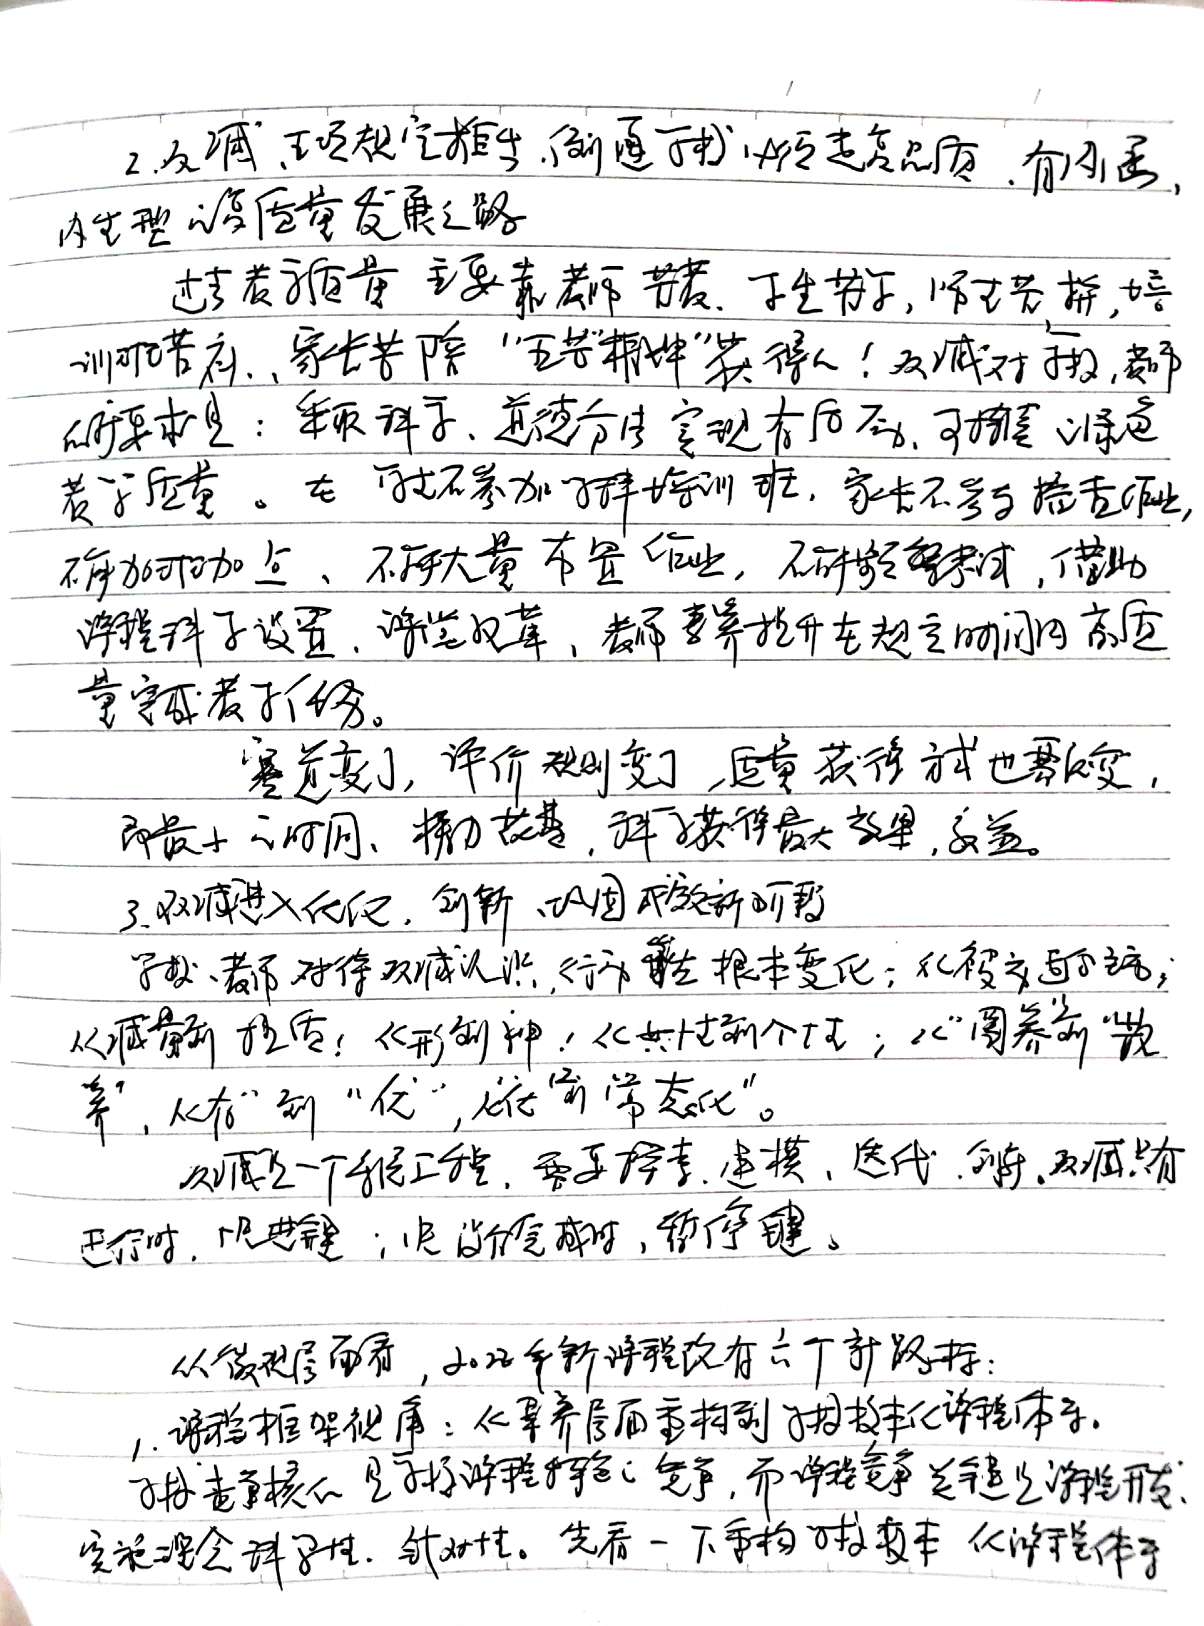 2.双减、五项规定推出,倒逼学校必须走高品质、有内涵,
内生型的高质量发展之路
过去教学质量主要靠老师苦教、学生苦学,师生苦拼,培
训班苦补、家长苦陪"五苦精神"获得!双减对学校,老师
的要求是:采取科学、道德方法实现有后劲、可持续的绿色
教学质量。在学生不参加学科培训班,家长不参与检查作业,
不能加时加点、不能大量布置作业,不能频繁考试,借助
课程科学设置、课堂改革、老师素养提升在规定时间内高质
量完成教学任务。
赛道变了,评价规则变了,质量获得方式也要改变,
即最少的时间、精力,科学获得最大效果,效益。
3.双减进入优化、创新、巩固成效新阶段
学校、老师对待双减认识、行动发生根本变化:从被动到主动;
从减量到提质;从形到神;从共性到个性;从"圈养"到"散
养",从"有"到"优",从"优"到"常态化"。
双减是一个系统工程,需要探索、建模、迭代、创新。双减只有
进行时,快进键;没有完成时,暂停键。
从微观层面看,2022年新课程改有六个新路标:
1.课程框架视角:从素养层面重构到学校校本化课程体系。
学校竞争核心是学校课程体系的竞争,而课程竞争关键是课程开发、
实施理念科学性、针对性。先看一下重构学校校本化课程体系